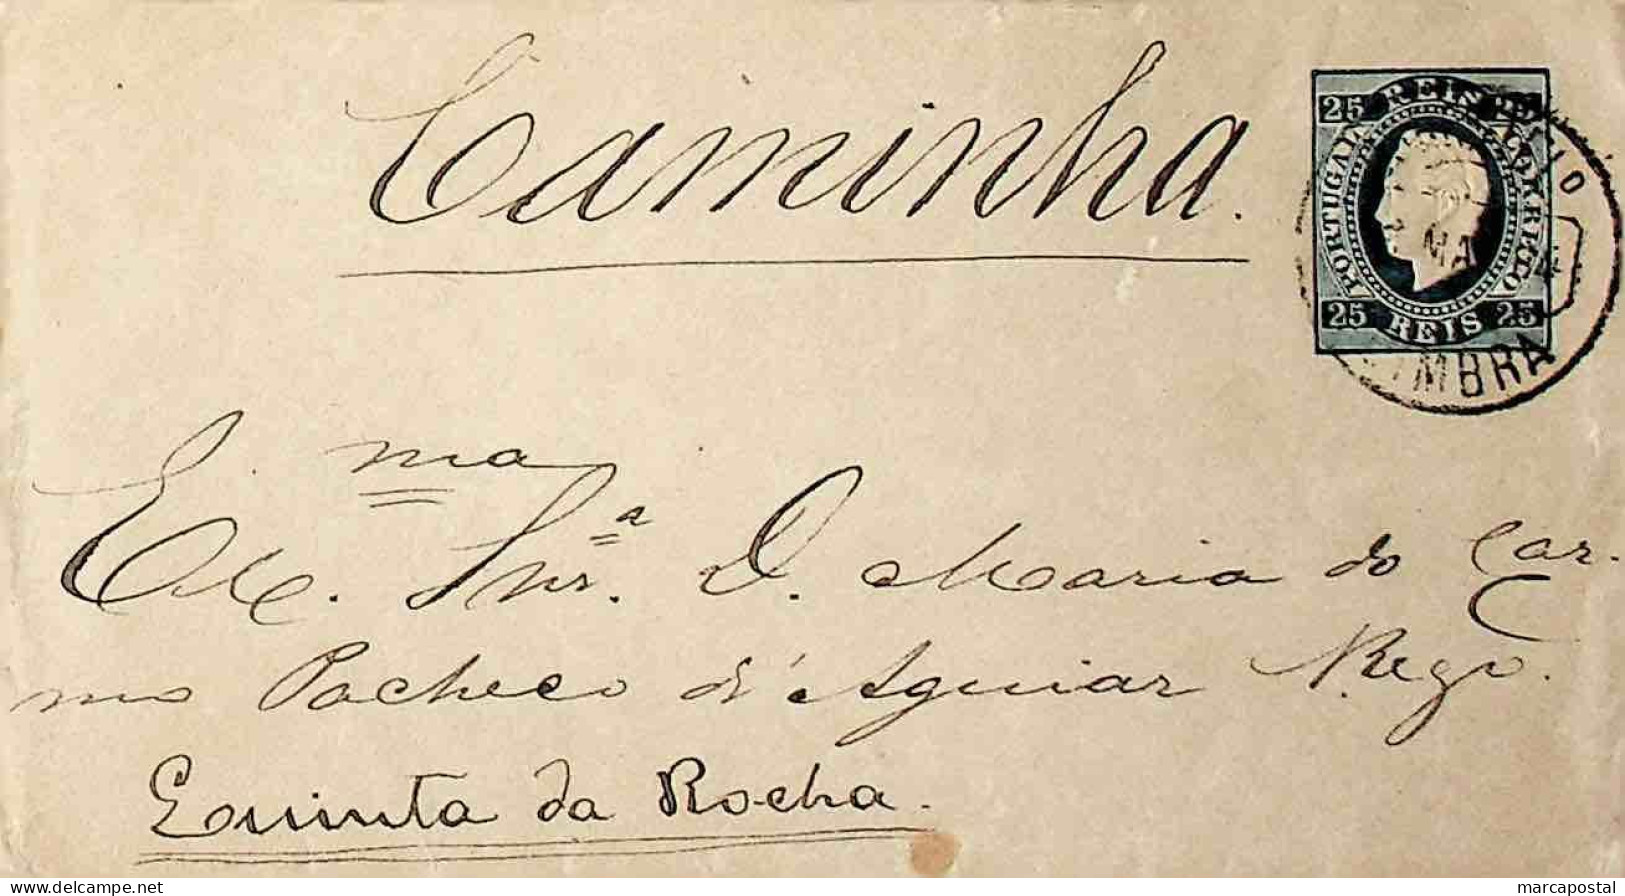 Caminha.
25 REIS 25
PORTUGAL
CORREIO
25 REIS 25
MBRA
Ex.ma Snr.a D. Maria do Car-
mo Pacheco d'Aguiar Rego.
Quinta da Rocha.
www.delcampe.net
marcapostal